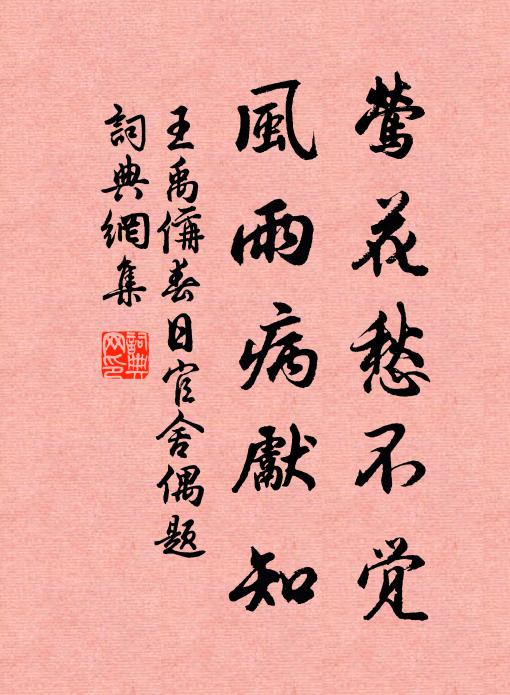 莺花愁不觉
風雨病獻知
王禹偁春日官舍偶题
詞典網集
詞典
网印